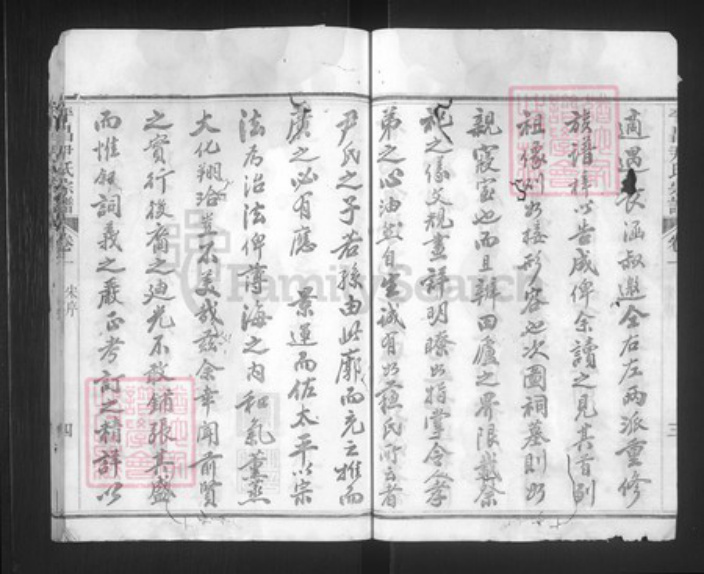 適遇長涵叔邀仝右左兩派重修
族譜梓以告成俾余讀之見其首刷
祖像則如接形容也次圖祠墓則如
親寢室也而且辨田廬之界限載祭
祀之儀文規畫詳明瞭如指掌令人孝
弟之心油然自生誠有如蘇氏所云者
尹氏之子若孫由此廓而充之推而
廣之必有應 景運而佐太平以宗
法為治法俾薄海之內和氣薰蒸
大化翔洽豈不美哉茲余幸聞前賢
之實行後裔之廸光不敢鋪張其盛
而惟叙詞義之嚴正考訂之精詳以
尹氏宗譜
卷一
宋序
四
三
FamilySearch